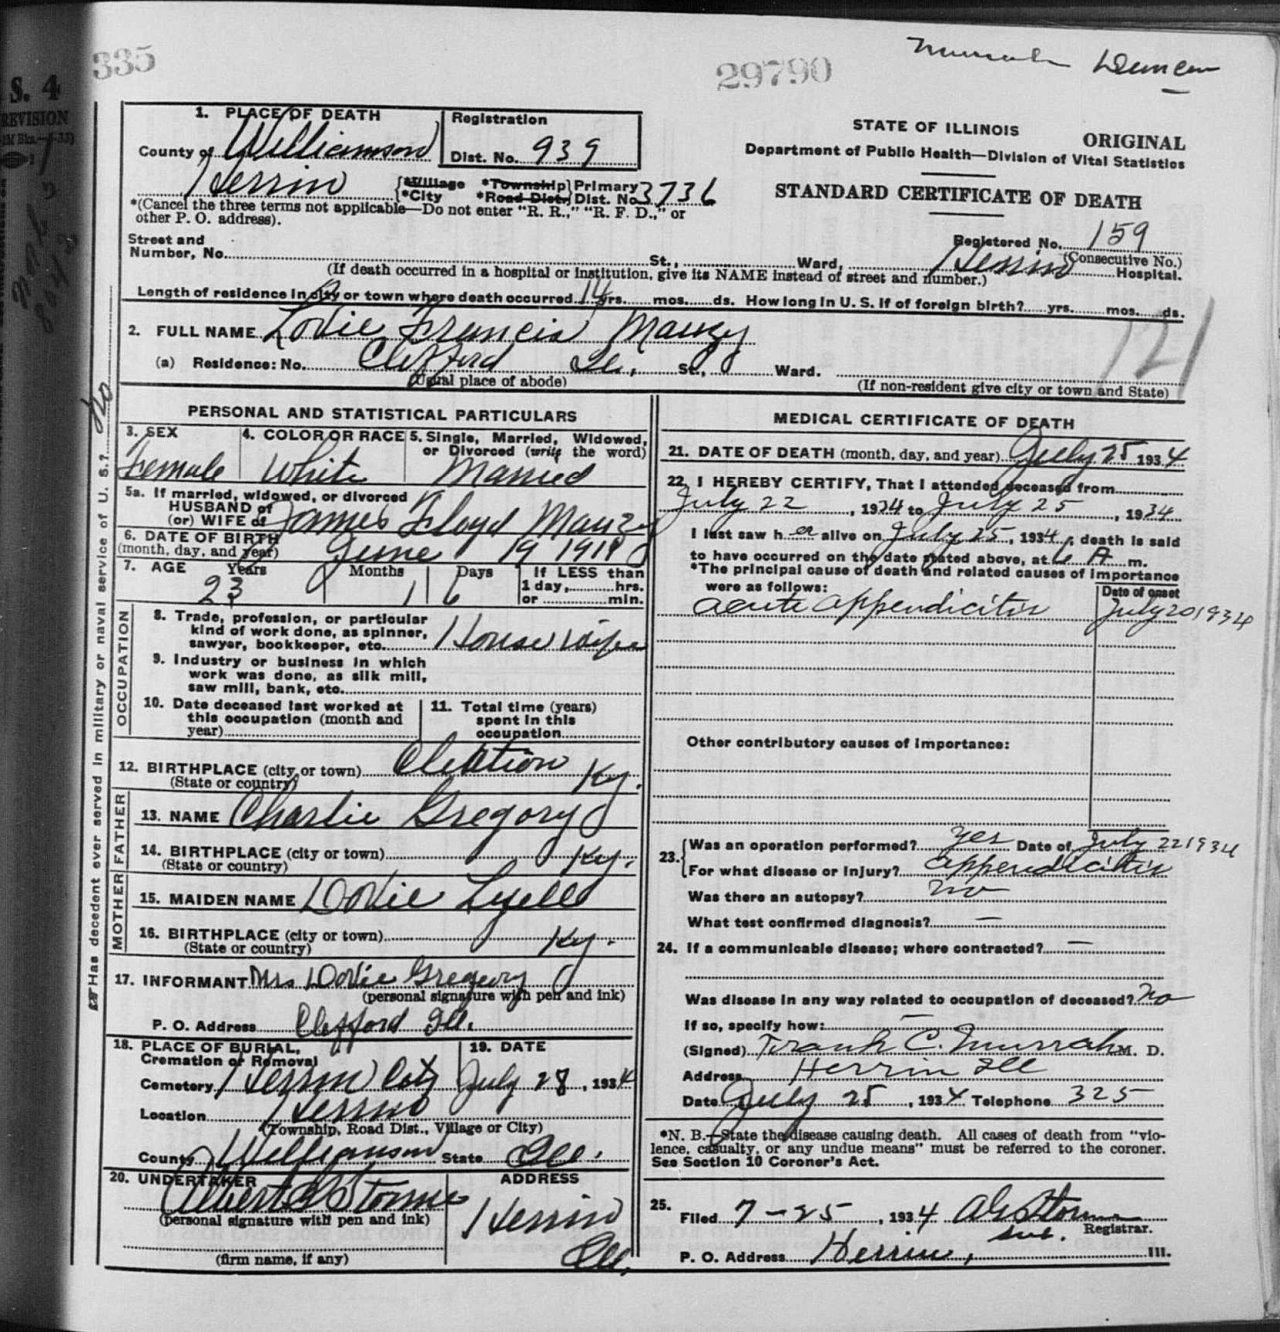 335
29790
Duncan
S. 4
REVISION
1. PLACE OF DEATH
County of Williamson
Registration
Dist. No. 939
Herrin
*Village *Township Primary
*City *Road Dist. Dist. No. 3736
*(Cancel the three terms not applicable—Do not enter "R. R.," "R. F. D.," or
other P. O. address).
STATE OF ILLINOIS
ORIGINAL
Department of Public Health—Division of Vital Statistics
STANDARD CERTIFICATE OF DEATH
Registered No. 159
(Consecutive No.)
Street and
Number, No. St., Ward, Herrin Hospital.
(If death occurred in a hospital or institution, give its NAME instead of street and number.)
Length of residence in city or town where death occurred 14 yrs. mos. ds. How long in U. S. if of foreign birth? yrs. mos. ds.
2. FULL NAME Lovie Francis Mauzy
121
(a) Residence: No. Clifford Ill. St., Ward.
(Usual place of abode)
(If non-resident give city or town and State)
Has decedent ever served in military or naval service of U. S.? no
PERSONAL AND STATISTICAL PARTICULARS
3. SEX
Female
4. COLOR OR RACE
White
5. Single, Married, Widowed,
or Divorced (write the word)
Married
5a. If married, widowed, or divorced
HUSBAND of
(or) WIFE of James Floyd Mauzy
6. DATE OF BIRTH
(month, day, and year) June 19 1911
7. AGE Years Months Days If LESS than
1 day, hrs.
or min.
23 1 6
OCCUPATION
8. Trade, profession, or particular
kind of work done, as spinner,
sawyer, bookkeeper, etc. House wife
9. Industry or business in which
work was done, as silk mill,
saw mill, bank, etc.
10. Date deceased last worked at
this occupation (month and
year)
11. Total time (years)
spent in this
occupation
12. BIRTHPLACE (city or town) Cleation
(State or country) Ky.
FATHER
13. NAME Charlie Gregory
14. BIRTHPLACE (city or town)
(State or country) Ky.
MOTHER
15. MAIDEN NAME Dovie Lyell
16. BIRTHPLACE (city or town)
(State or country) Ky.
17. INFORMANT Mrs Dovie Gregory
(personal signature with pen and ink)
P. O. Address Clifford Ill.
18. PLACE OF BURIAL,
Cremation or Removal
Cemetery Herrin City
19. DATE
July 28, 1934
Location Herrin
(Township, Road Dist., Village or City)
County Williamson State Ill.
20. UNDERTAKER
Albert Storme
(personal signature with pen and ink)
(firm name, if any)
ADDRESS
Herrin
Ill.
MEDICAL CERTIFICATE OF DEATH
21. DATE OF DEATH (month, day, and year) July 25 1934
22. I HEREBY CERTIFY, That I attended deceased from
July 22, 1934 to July 25, 1934
I last saw her alive on July 25, 1934, death is said
to have occurred on the date stated above, at 6 A m.
*The principal cause of death and related causes of importance
were as follows:
Date of onset
acute appendicitis July 20 1934
Other contributory causes of importance:
23. Was an operation performed? yes Date of July 22 1934
For what disease or injury? appendicitis
Was there an autopsy? no
What test confirmed diagnosis? —
24. If a communicable disease; where contracted? —
Was disease in any way related to occupation of deceased? no
If so, specify how: —
(Signed) Frank C. Murrah M. D.
Address Herrin Ill
Date July 25, 1934 Telephone 325
*N. B.—State the disease causing death. All cases of death from "vio-
lence, casualty, or any undue means" must be referred to the coroner.
See Section 10 Coroner's Act.
25.
Filed 7-25, 1934 Storme
Sub. Registrar.
P. O. Address Herrin, Ill.